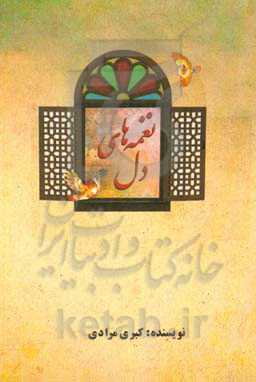 نغمه‌های
دل
خانه کتاب و ادبیات ایران
نویسنده: کبری مرادی
ketab.ir